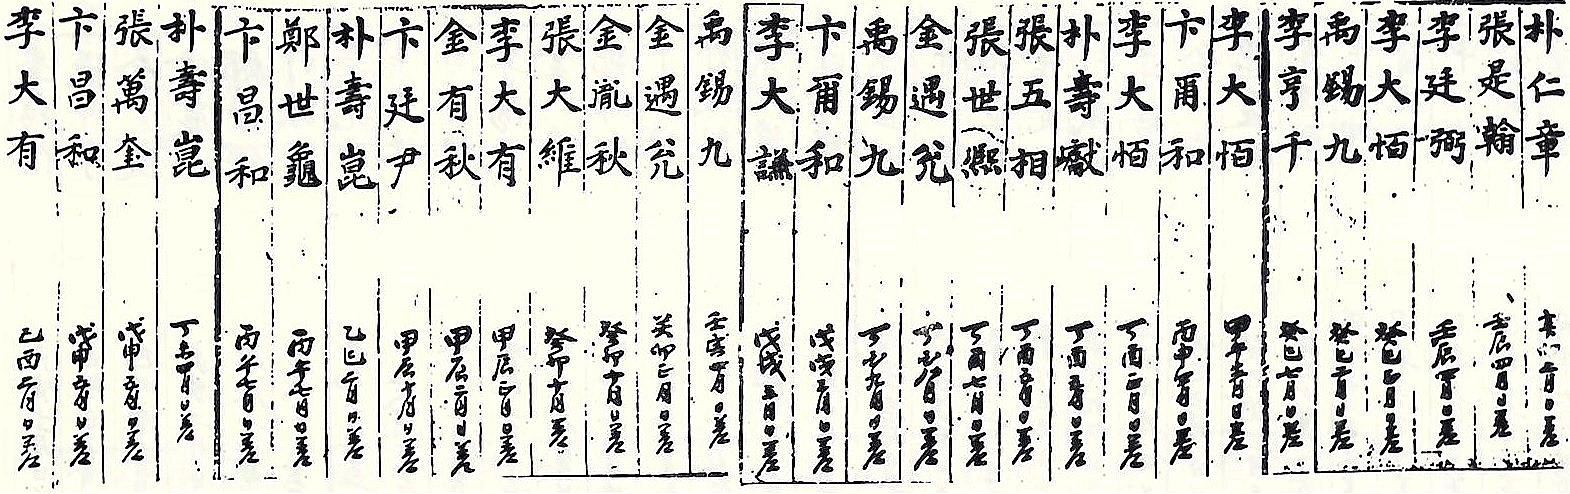 朴仁章 辛卯六月日差
張是翰 壬辰四月日差
李廷弼 壬辰四月日差
李大 癸巳正月日差
禹錫九 癸巳二月日差
李亨千 癸巳七月日差
李大 甲午月日差
卞爾和 丙申四月日差
李大 丁酉二月日差
朴壽巘 丁酉五月日差
張五相 丁酉五月日差
張世熙 丁酉七月日差
金遇兌 丁酉八月日差
禹錫九 丁酉九月日差
卞爾和 戊戌三月日差
李大謙 戊戌五月日差
禹錫九 壬寅四月日差
金遇兌 癸卯正月日差
金胤秋 癸卯十月日差
張大維 癸卯十月日差
李大有 甲辰正月日差
金有秋 甲辰二月日差
卞廷尹 甲辰十月日差
朴壽崑 乙巳二月日差
鄭世龜 丙午七月日差
卞昌和 丙午七月日差
朴壽崑 丁未四月日差
張萬奎 戊申五月日差
卞昌和 戊申五月日差
李大有 己酉二月日差